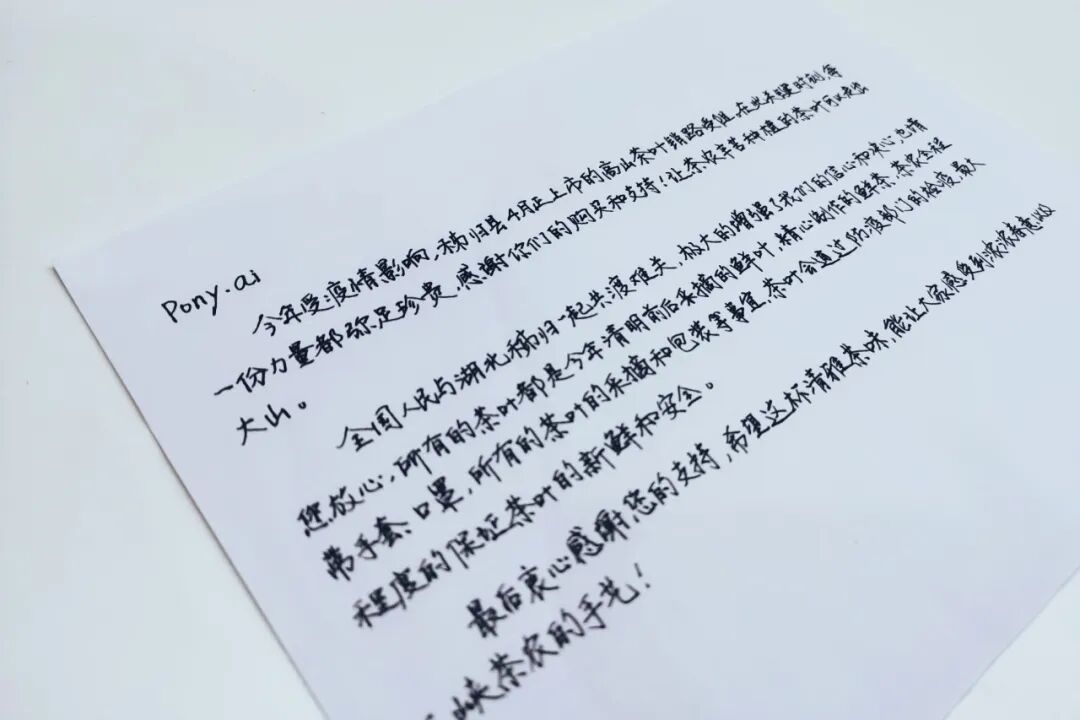 Pony.ai
今年受疫情影响，秭归县4月正上市的高山茶叶销路受阻，在此关键时刻，每
一份力量都弥足珍贵，感谢你们的购买和支持！让茶农辛苦种植的茶叶可以走出
大山。
全国人民与湖北秭归一起共渡难关，极大的增强了我们的信心和决心，也请
您放心，所有的茶叶都是今年清明前后采摘的鲜叶，精心制作的鲜茶，茶农全程
带手套、口罩，所有的茶叶的采摘和包装等事宜，茶叶会通过防疫部门的检疫，最大
程度的保证茶叶的新鲜和安全。
最后衷心感谢您的支持，希望这杯清雅茶味，能让大家感受到浓浓春意以
峡茶农的手艺！